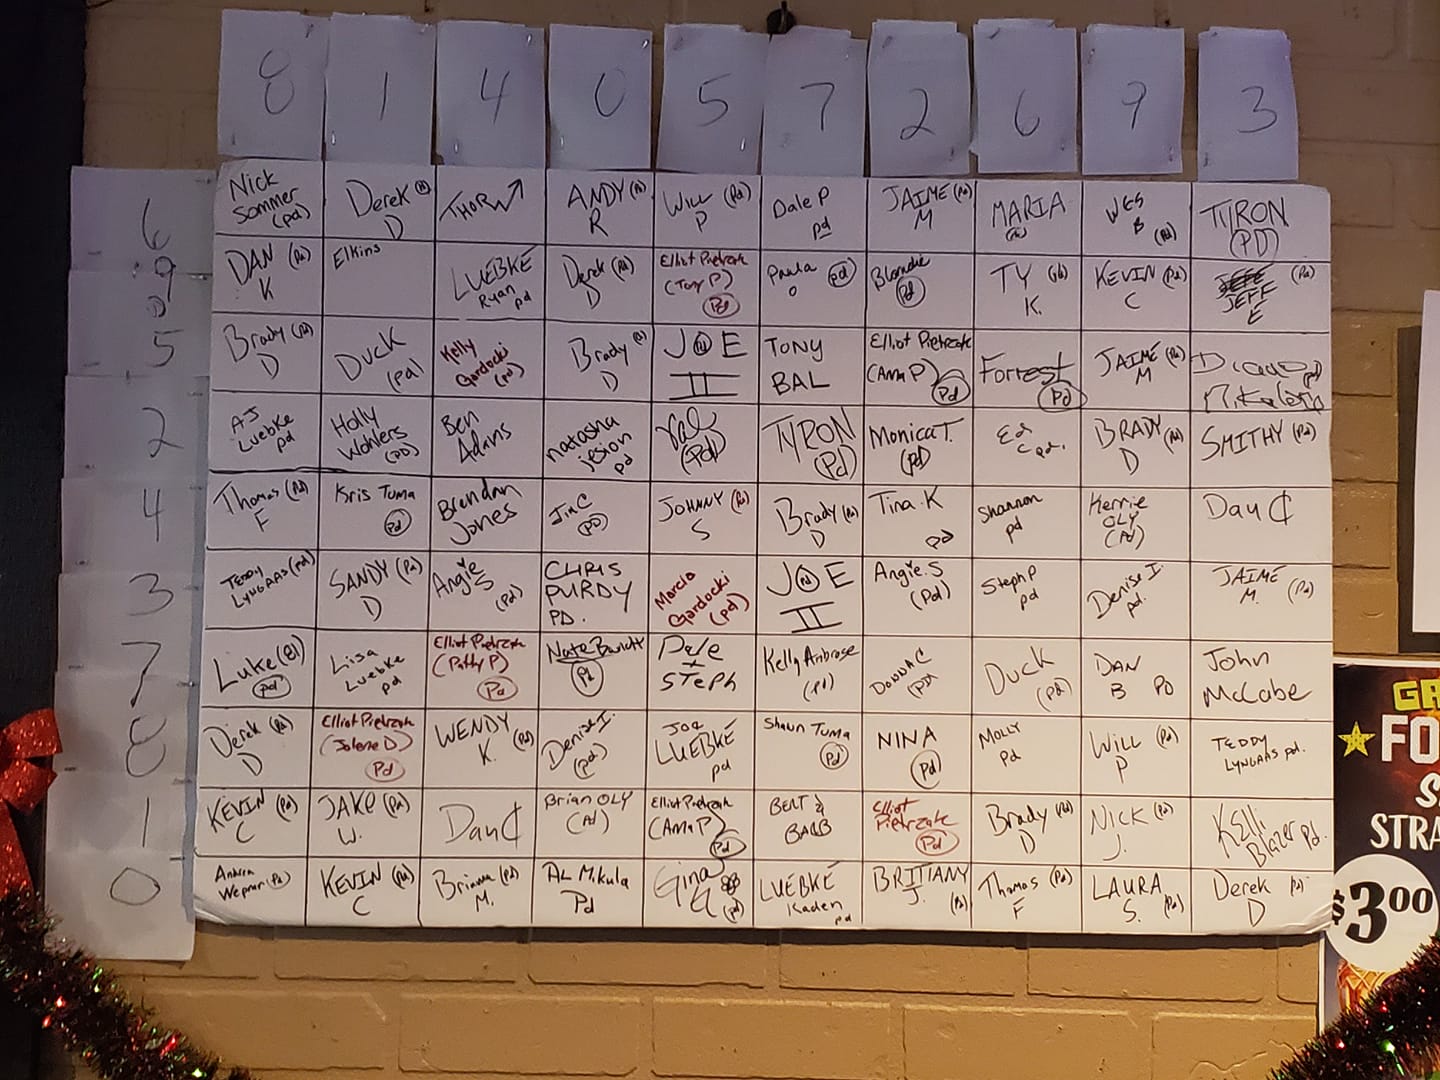 8 1 4 0 5 7 2 6 9 3
6
Nick Sommer (pd)
Derek (Pd) D
THOR
ANDY (Pd) R
WILL (Pd) P
Dale P pd
JAIME (Pd) M
MARIA
WES B (Pd)
TYRON (PD)
9
DAN (Pd) K
Elkins
LUEBKE Ryan pd
Derek (Pd) D
Elliot Pietrzak (Tony P) Pd
Paula O pd
Blondie Pd
TY K.
KEVIN (Pd) C
JEFF E (Pd)
5
Brady (Pd) D
Duck (pd)
Kelly Gardocki (pd)
Brady D
JOE II
TONY BAL
Elliot Pietrzak (Ama P) Pd
Forrest Pd
JAIME (Pd) M
2
AJ Luebke pd
Holly Wohlers (PD)
Ben Adams
Natasha jesion pd
Val (Pd)
TYRON (Pd)
Monica T. (pd)
Ed C pd.
BRADY (Pd) D
SMITHY (Pd)
4
Thomas (Pd) F
Kris Tuma Pd
Brendan Jones
Jim C (PD)
JOHNNY (Pd) S
Brady (Pd) D
Tina K pd
Shannon pd
Kerrie OLY (Pd)
Dan C
3
TEDDY LYNGAAS (pd)
SANDY (Pd) D
Angie S (Pd)
CHRIS PURDY PD.
Marcia Gardocki (pd)
JOE Pd II
Angie. S (Pd)
Steph P pd
Denise I. pd.
JAIME M. (Pd)
7
Luke pd
Lisa Luebke pd
Elliot Pietrzak (Patty P) Pd
Pd
Dale + STEPH
Kelly Ambrose (pd)
DONNA C (PD)
Duck (pd)
DAN B PD
John McCabe
8
Derek (Pd) D
Elliot Pietrzak (Jolene D) Pd
WENDY K. (Pd)
Denise I. (pd)
Joe LUEBKE pd
Shawn Tuma Pd
NINA Pd
MOLLY pd
WILL (Pd) P
TEDDY LYNGAAS pd.
1
KEVIN (Pd) C
JAKE (Pd) W.
Dan C
Brian OLY (Pd)
Elliot Pietrzak (Ama P) Pd
BERT & BARB
Elliot Pietrzak Pd
Brady (Pd) D
NICK (Pd) J.
KElli Blazer pd.
0
Andrea
KEVIN (Pd) C
Briana (Pd) M.
AL Mikula Pd
Gina G (pd)
LUEBKE Kaden pd
BRITTANY J. (Pd)
Thomas (Pd) F
LAURA S. (Pd)
Derek Pd D
FO
STRA
$3.00